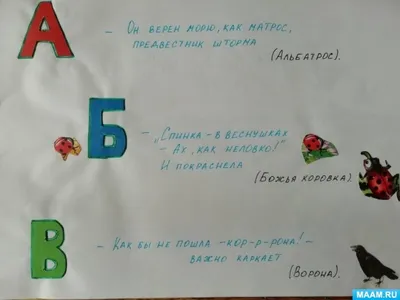 А
- Он верен морю, как матрос,
предвестник шторма
(Альбатрос).
Б
- „Спинка - в веснушках
- Ах, как неловко!"
И покраснела
(Божья коровка).
В
- Как бы не пошла - кор-р-рона! -
важно каркает
(Ворона).
MAAM.RU